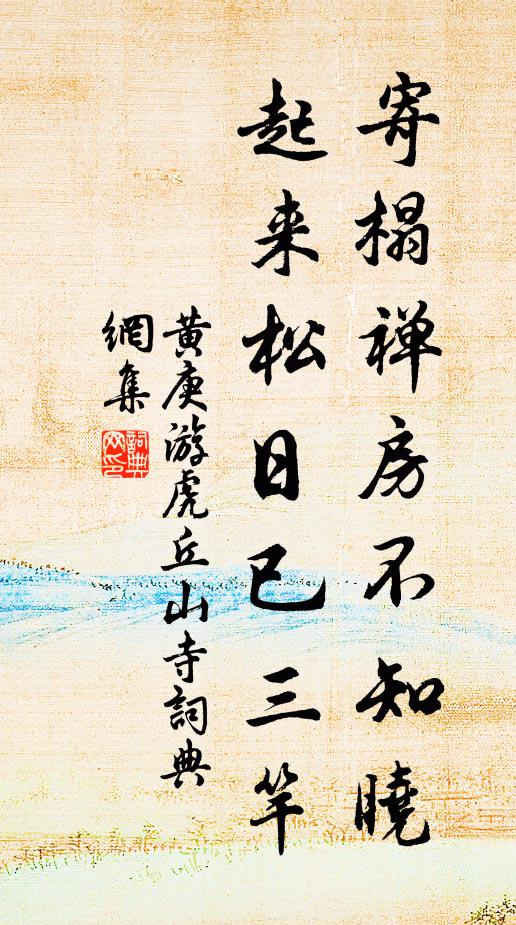 寄榻禅房不知曉
起来松日已三竿
黄庚游虎丘山寺詞典
網集
詞典
网印